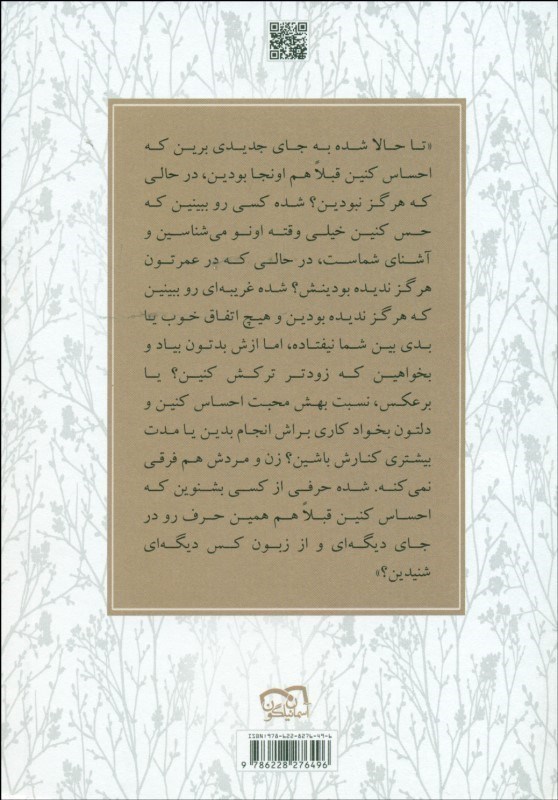 «تا حالا شده به جای جدیدی برین که
احساس کنین قبلاً هم اونجا بودین، در حالی
که هرگز نبودین؟ شده کسی رو ببینین که
حس کنین خیلی وقته اونو می‌شناسین و
آشنای شماست، در حالی که در عمرتون
هرگز ندیده بودینش؟ شده غریبه‌ای رو ببینین
که هرگز ندیده بودین و هیچ اتفاق خوب یا
بدی بین شما نیفتاده، اما ازش بدتون بیاد و
بخواهین که زودتر ترکش کنین؟ یا
برعکس، نسبت بهش محبت احساس کنین و
دلتون بخواد کاری براش انجام بدین یا مدت
بیشتری کنارش باشین؟ زن و مردش هم فرقی
نمی‌کنه. شده حرفی از کسی بشنوین که
احساس کنین قبلاً هم همین حرف رو در
جای دیگه‌ای و از زبون کس دیگه‌ای
شنیدین؟»
آسمان نیلگون
ISBN: 978-622-8276-49-6
9 786228 276496